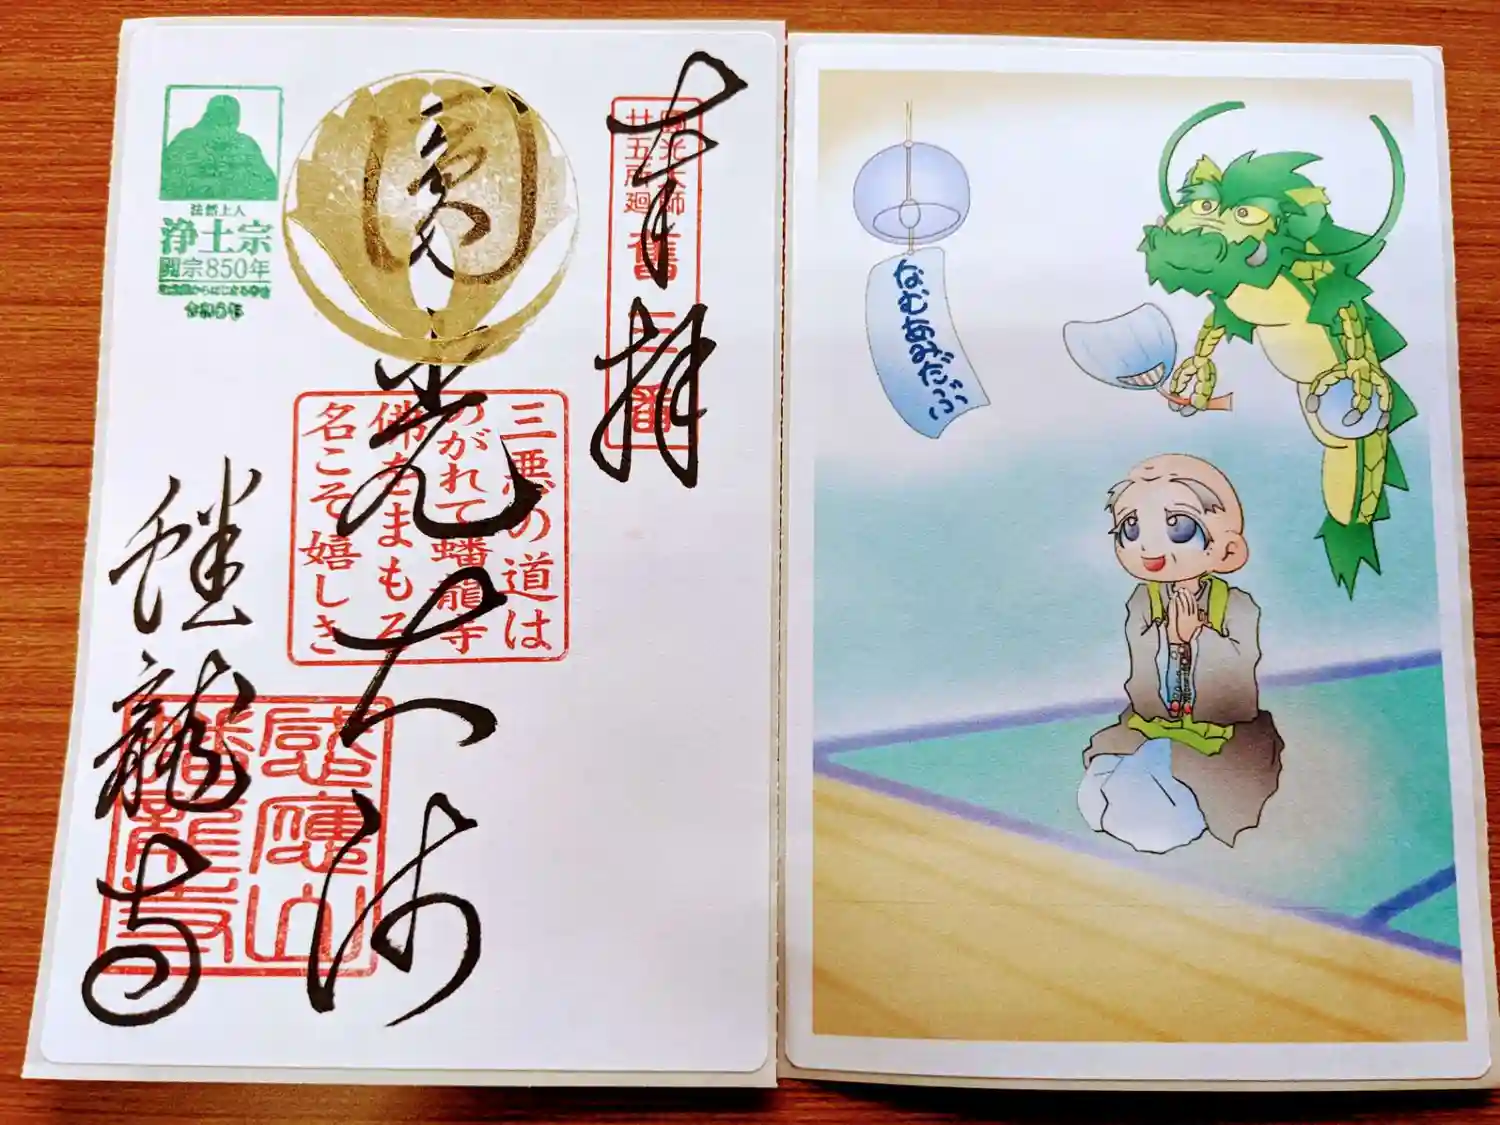 奉拝
圓光大師
廿五所廻
舊三番
圓光大師
三悪の道は
のがれて蟠龍寺
佛をまもる
名こそ嬉しき
法然上人
浄土宗
開宗850年
令和6年
蟠龍寺
感應山
蟠龍寺
なむあみだぶ